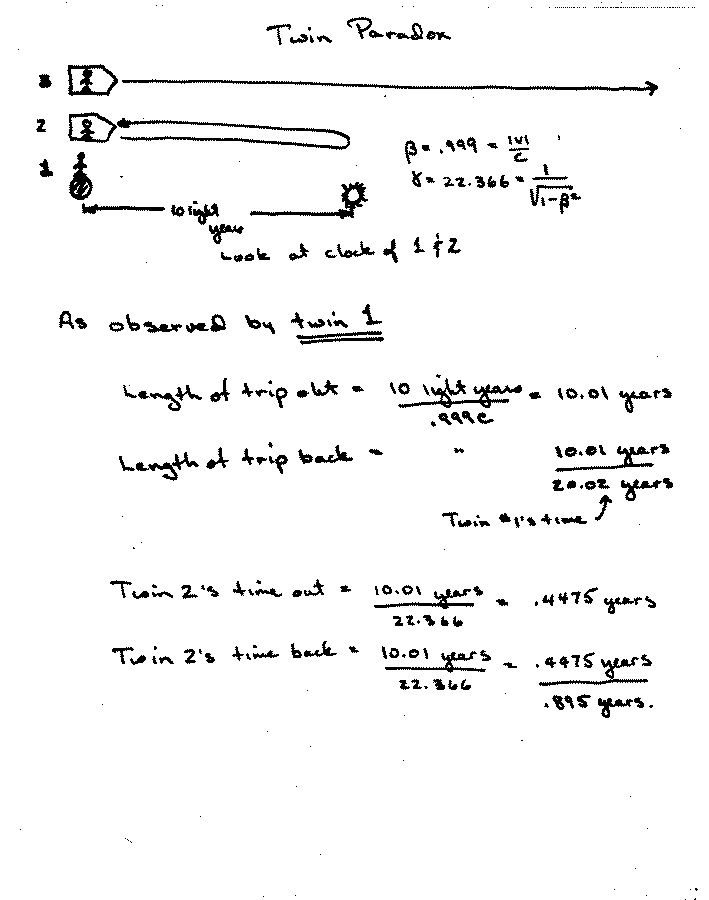 Twin Paradox
3
2
β = .999 = |v|/c
1
γ = 22.366 = 1/√1-β²
10 light years
Look at clock of 1 & 2
As observed by twin 1
Length of trip out = 10 light years/.999c = 10.01 years
Length of trip back = " 10.01 years
20.02 years
Twin #1's time
Twin 2's time out = 10.01 years/22.366 = .4475 years
Twin 2's time back = 10.01 years/22.366 = .4475 years
.895 years.